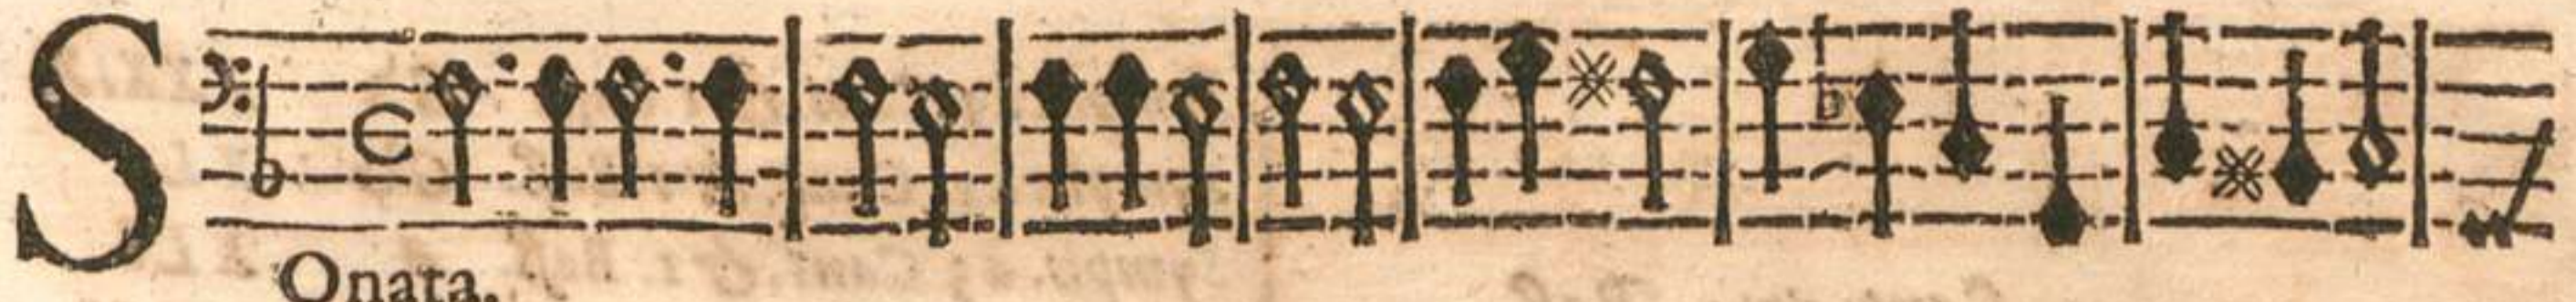 S
Onata.